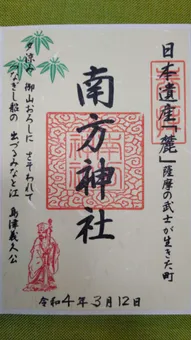 日本遺産「麓」薩摩の武士が生きた町
南方神社
夕涼み 御山おろしに さそわれて
なぎし船の 出づるみなと江 島津義久公
令和4年3月12日